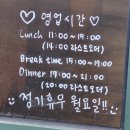 ♡영업시간♡
Lunch 11:00~15:00
(14:00 라스트오더)
Break time 15:00~17:00
Dinner 17:00~21:00
(20:00 라스트오더)
정기휴무 월요일!!